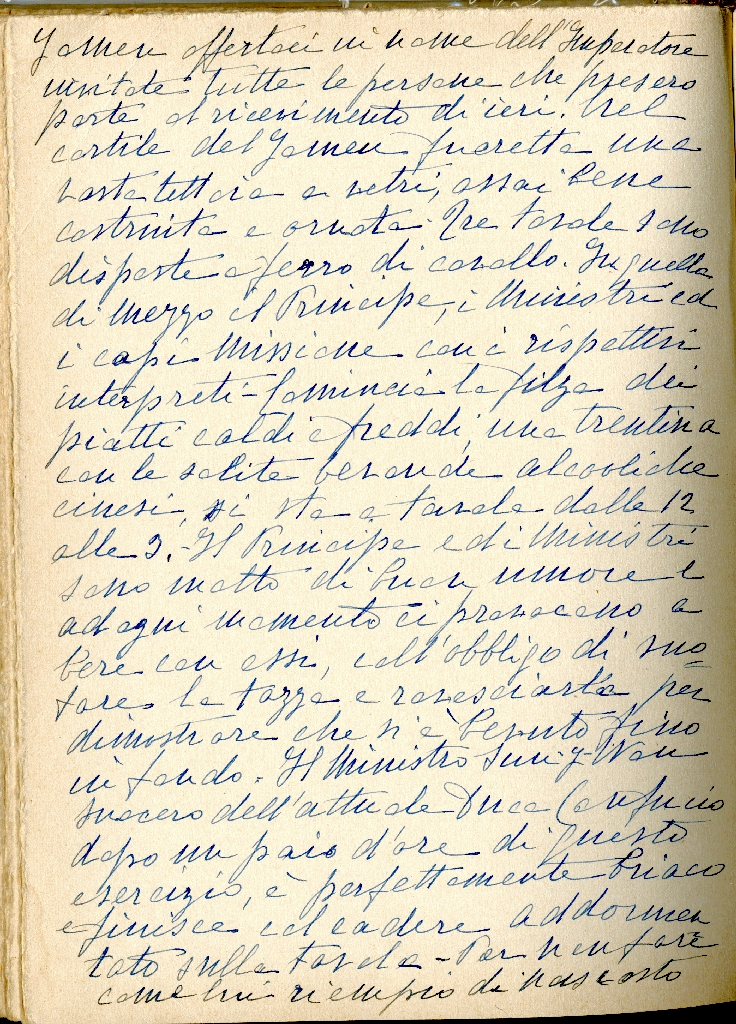 Yamen offertoci in nome dell'Imperatore
invitate tutte le persone che presero
parte al ricevimento di ieri. Nel
cortile del Yamen fu eretta una
vasta tettoia a vetri, assai bene
costruita e ornata. Tre tavole sono
disposte a ferro di cavallo. In quella
di mezzo il Principe, i Ministri ed
i capi Missione con i rispettivi
interpreti - Comincia la filza dei
piatti caldi e freddi, una trentina
con le solite bevande alcooliche
cinesi, si sta a tavola dalle 12
alle 3. - Il Principe ed i Ministri
sono molto di buon umore e
ad ogni momento ci provocano a
bere con essi, coll'obbligo di vuo-
tare la tazza e rovesciarla per
dimostrare che si è bevuto fino
in fondo. Il Ministro Sun-y-Wan
suocero dell'attuale Duca Confucio
dopo un paio d'ore di questo
esercizio, è perfettamente briaco
e finisce col cadere addormen
tato sulla tavola - Per non fare
come lui riempio di nascosto